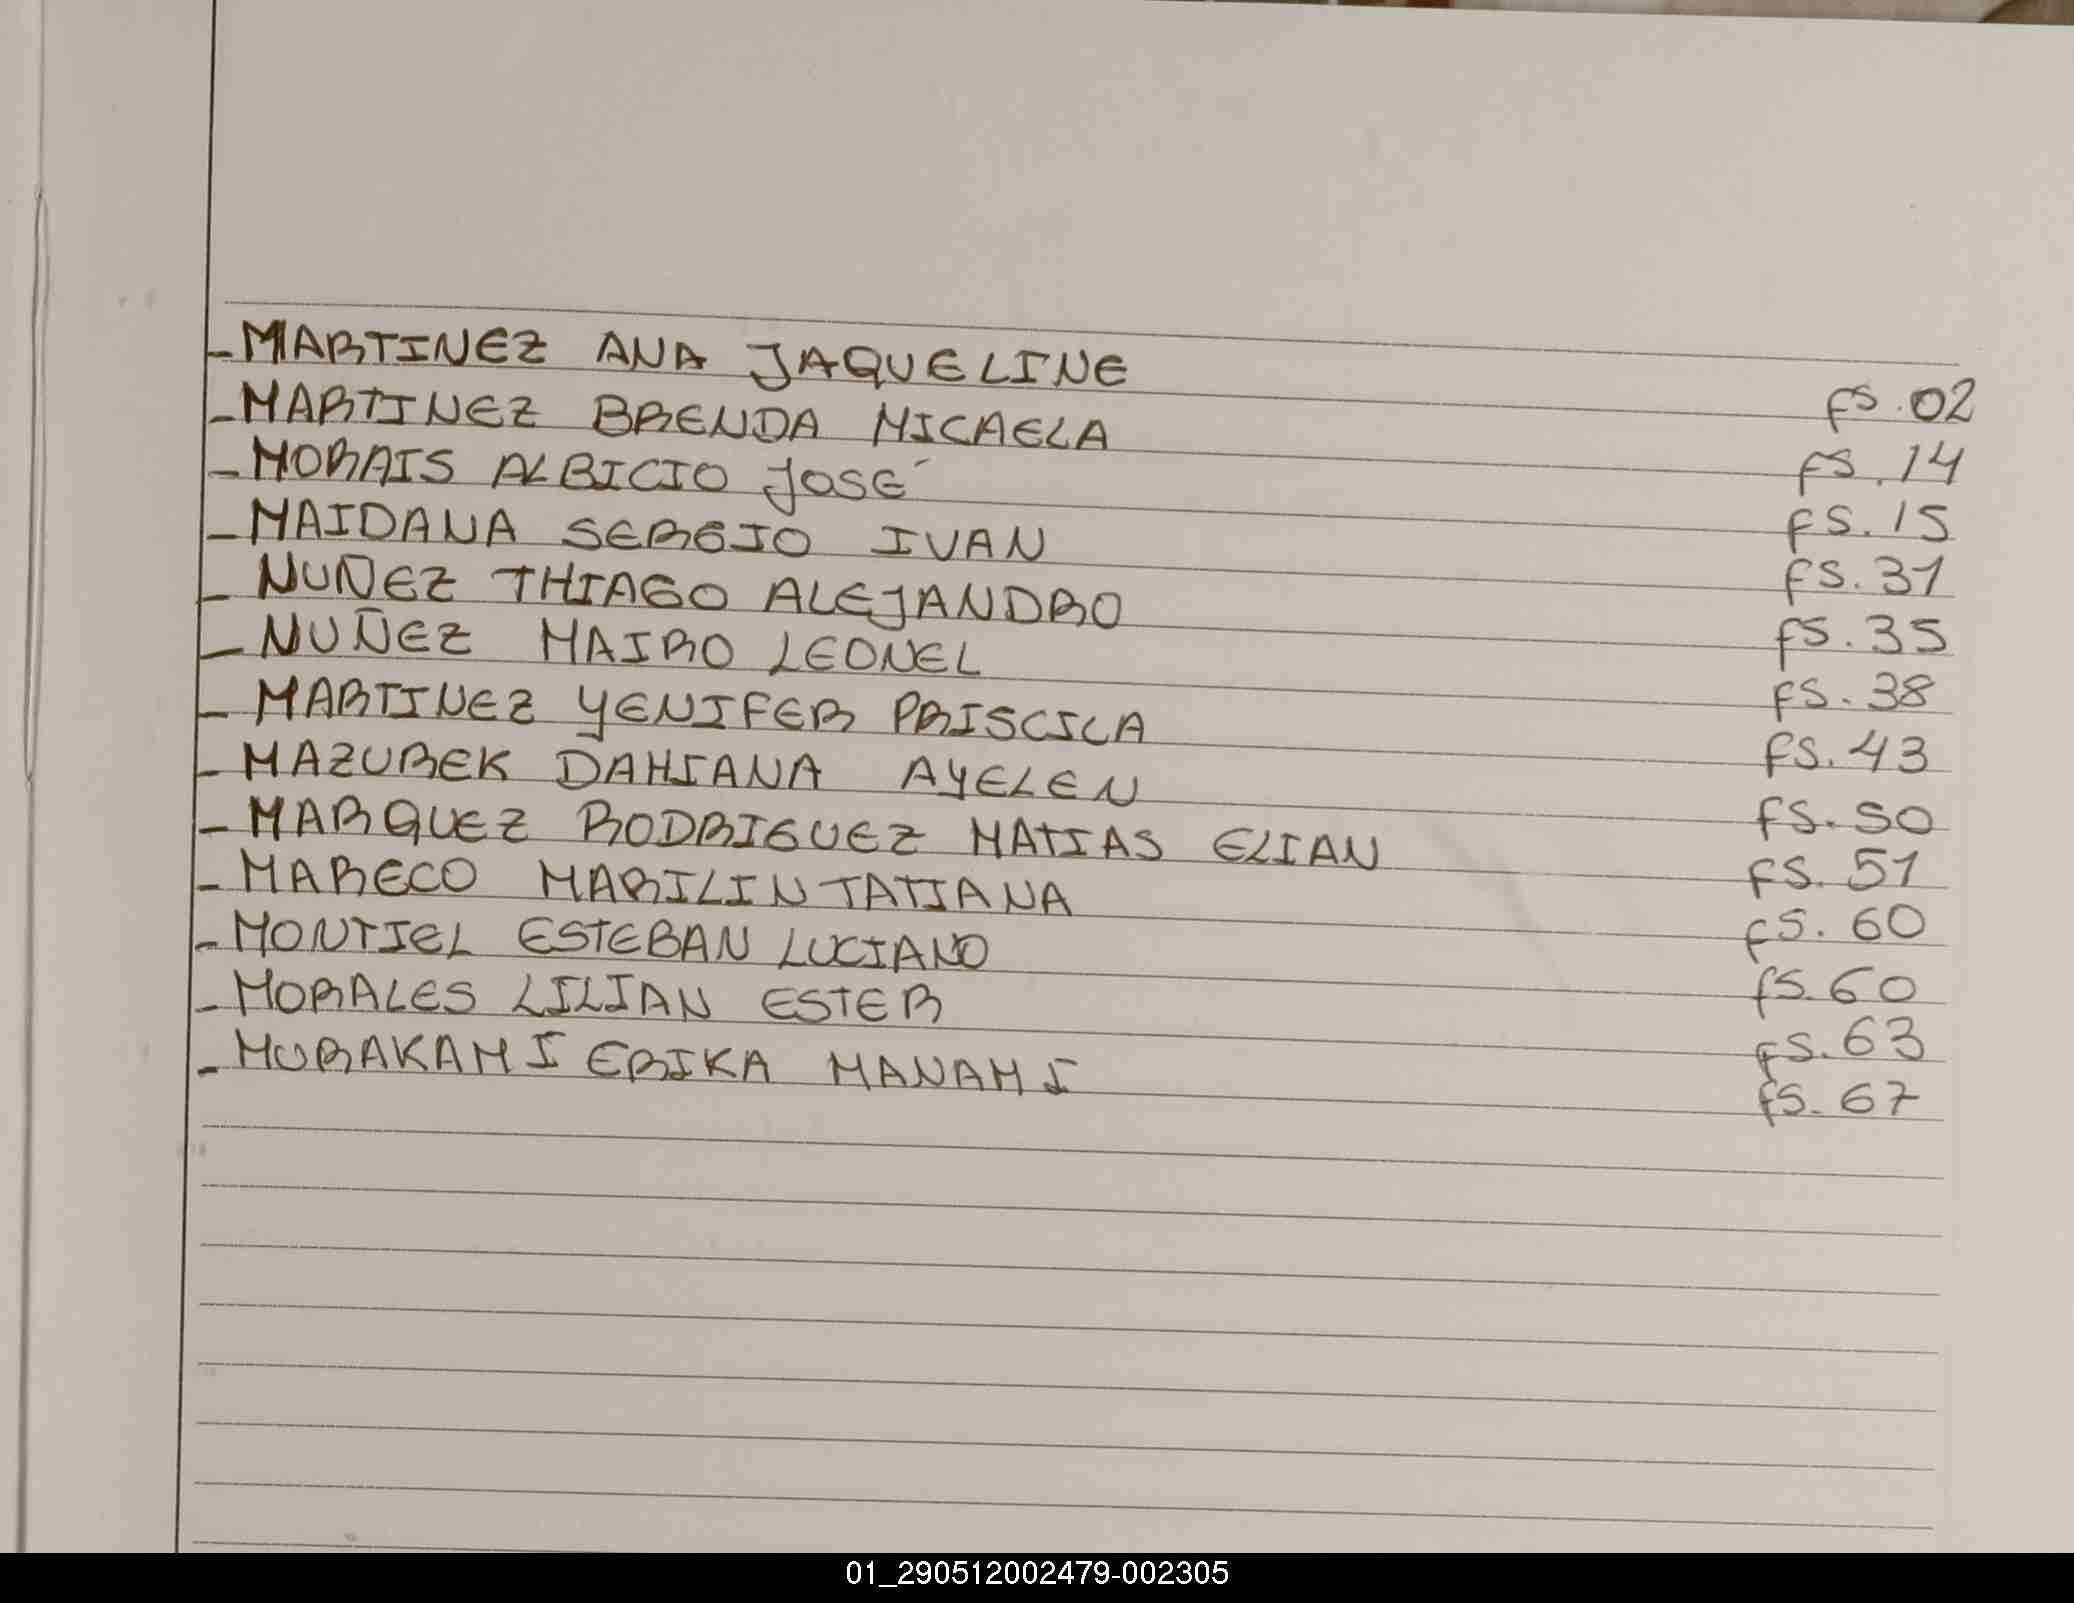 - MARTINEZ ANA JAQUELINE fs. 02
- MARTINEZ BRENDA MICAELA fs. 14
- MORAIS ALBICIO JOSÉ fs. 15
- MAIDANA SERGIO IVAN fs. 31
- NUÑEZ THIAGO ALEJANDRO fs. 35
- NUÑEZ MAIRO LEONEL fs. 38
- MARTINEZ YENIFER PRISCILA fs. 43
- MAZUREK DAHIANA AYELEN fs. 50
- MARQUEZ RODRIGUEZ MATIAS ELIAN fs. 51
- MARECO MARILIN TATIANA fs. 60
- MONTIEL ESTEBAN LUCIANO fs. 60
- MORALES LILIAN ESTER fs. 63
- MURAKAMI ERIKA MANAMI fs. 67
01_290512002479-002305